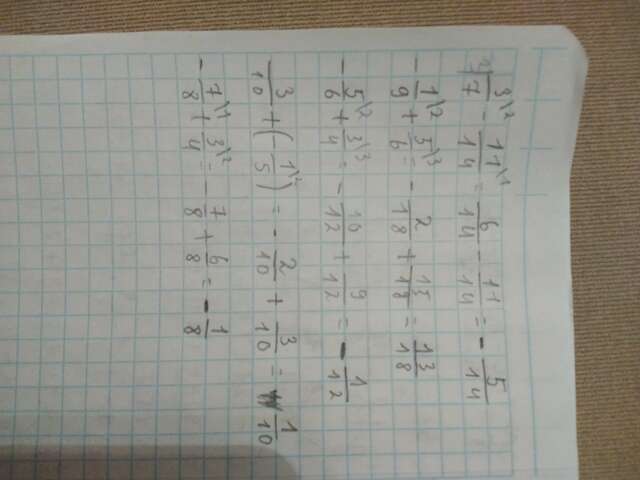 3/7\2 - 11/14\1 = 6/14 - 11/14 = - 5/14
- 1/9\2 + 5/6\3 = - 2/18 + 15/18 = 13/18
- 5/6\2 + 3/4\3 = - 10/12 + 9/12 = - 1/12
3/10 + (- 1/5\2) = - 2/10 + 3/10 = 1/10
- 7/8\1 + 3/4\2 = - 7/8 + 6/8 = - 1/8